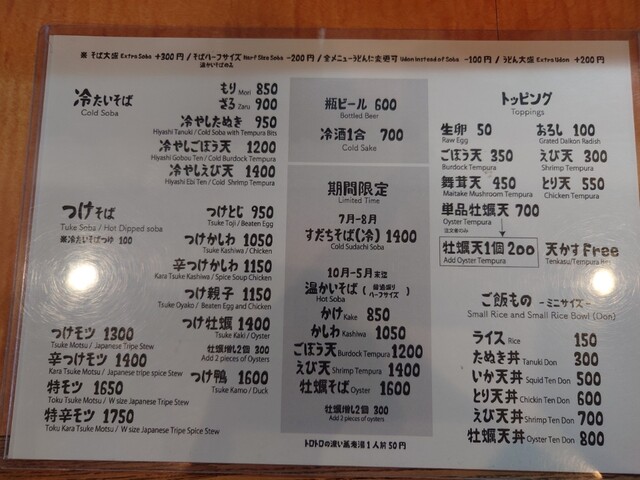 ※ そば大盛 Extra Soba +300円 / そばハーフサイズ Harf Size Soba -200円 / 全メニューうどんに変更可 Udon Instead of Soba -100円 / うどん大盛 Extra Udon +200円
温かいそばのみ
冷たいそば
Cold Soba
もり Mori 850
ざる Zaru 900
冷やしたぬき 950
Hiyashi Tanuki / Cold Soba with Tempura Bits
冷やしごぼう天 1200
Hiyashi Gobou Ten / Cold Burdock Tempura
冷やしえび天 1400
Hiyashi Ebi Ten / Cold Shrimp Tempura
つけそば
Tuke Soba / Hot Dipped soba
※冷たいそばつゆ 100
つけとじ 950
Tsuke Toji / Beaten Egg
つけかしわ 1050
Tsuke Kashiwa / Chicken
辛つけかしわ 1150
Kara Tsuke Kashiwa / Spice Soup Chicken
つけ親子 1150
Tsuke Oyako / Beaten Egg and Chicken
つけ牡蠣 1400
Tsuke Kaki / Oyster
牡蠣増し2個 300
Add 2 pieces of Oysters
つけ鴨 1600
Tsuke Kamo / Duck
つけモツ 1300
Tsuke Motsu / Japanese Tripe Stew
辛つけモツ 1400
Kara Tsuke Motsu / Japanese tripe spice Stew
特モツ 1650
Toku Tsuke Motsu / W size Japanese Tripe Stew
特辛モツ 1750
Toku Kara Tsuke Motsu / W size Japanese Tripe Spice Stew
瓶ビール 600
Bottled Beer
冷酒1合 700
Cold Sake
期間限定
Limited Time
7月-8月
すだちそば(冷) 1400
Cold Sudachi Soba
10月-5月末位
温かいそば
Hot Soba
(普通盛り ハーフサイズ)
かけ Kake 850
かしわ Kashiwa 1050
ごぼう天 Burdock Tempura 1200
えび天 Shrimp Tempura 1400
牡蠣そば Oyster 1600
牡蠣増し2個 300
Add 2 pieces of oysters
トロトロの濃い蕎麦湯1人前50円
トッピング
Toppings
生卵 50
Raw Egg
おろし 100
Grated Daikon Radish
ごぼう天 350
Burdock Tempura
えび天 300
Shrimp Tempura
舞茸天 450
Maitake Mushroom Tempura
とり天 550
Chicken Tempura
単品牡蠣天 700
Oyster Tempura
注文者のみ
牡蠣天1個200
Add Oyster Tempura
天かすFree
Tenkasu/Tempura Bits
ご飯もの -ミニサイズ-
Small Rice and Small Rice Bowl (Don)
ライス Rice 150
たぬき丼 Tanuki Don 300
いか天丼 Squid Ten Don 500
とり天丼 Chickin Ten Don 600
えび天丼 Shrimp Ten Don 700
牡蠣天丼 Oyster Ten Don 800